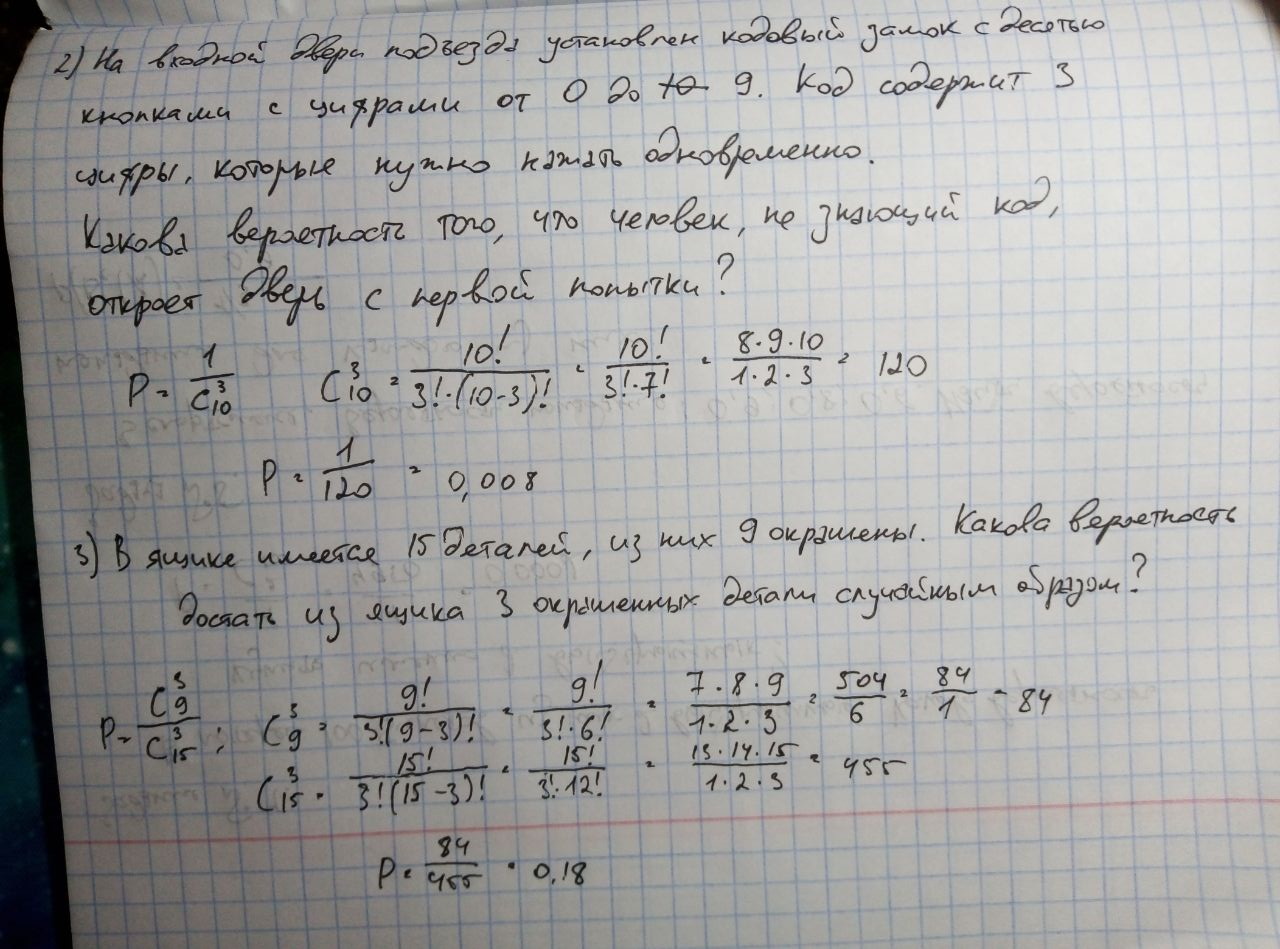 2) На входной двери подъезда установлен кодовый замок с десятью
кнопками с цифрами от 0 до 9. Код содержит 3
цифры, которые нужно нажать одновременно.
Какова вероятность того, что человек, не знающий код,
откроет дверь с первой попытки?
P = 1/C₁₀³ C₁₀³ = 10!/(3!·(10-3)!) = 10!/(3!·7!) = (8·9·10)/(1·2·3) = 120
P = 1/120 = 0,008
3) В ящике имеется 15 деталей, из них 9 окрашены. Какова вероятность
достать из ящика 3 окрашенных детали случайным образом?
P = C₉³/C₁₅³ ; C₉³ = 9!/(3!(9-3)!) = 9!/(3!·6!) = (7·8·9)/(1·2·3) = 504/6 = 84/1 = 84
C₁₅³ = 15!/(3!(15-3)!) = 15!/(3!·12!) = (13·14·15)/(1·2·3) = 455
P = 84/455 = 0,18